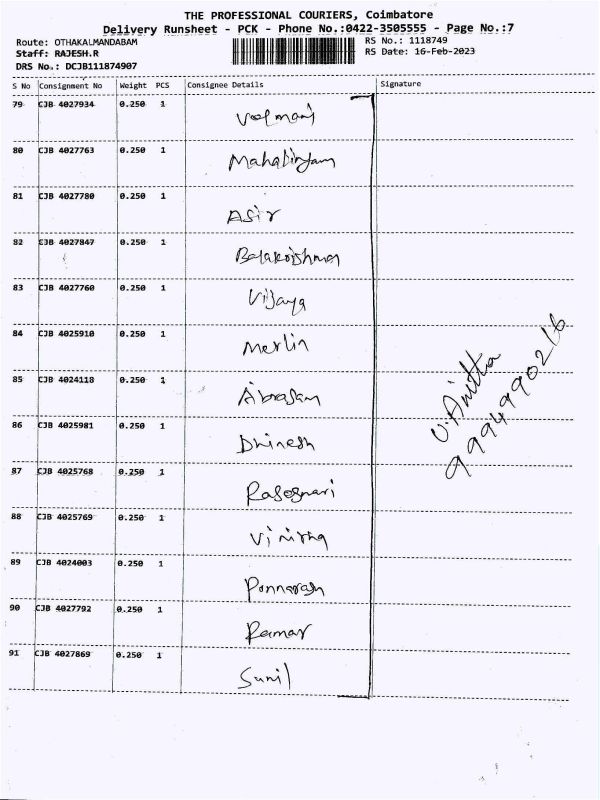 THE PROFESSIONAL COURIERS, Coimbatore
Delivery Runsheet - PCK - Phone No.:0422-3505555 - Page No.:7
Route: OTHAKALMANDABAM
RS No.: 1118749
Staff: RAJESH.R
RS Date: 16-Feb-2023
DRS No.: DCJB111874907
S No Consignment No Weight PCS Consignee Details Signature
79 CJB 4027934 0.250 1 Velmani
80 CJB 4027763 0.250 1 Mahalingam
81 CJB 4027780 0.250 1 Asir
82 CJB 4027847 0.250 1 Balakrishnan
83 CJB 4027760 0.250 1 Vijaya
84 CJB 4025910 0.250 1 Merlin
85 CJB 4024118 0.250 1
86 CJB 4025981 0.250 1 Dhinesh
87 CJB 4025768 0.250 1
88 CJB 4025769 0.250 1 Vinitha
89 CJB 4024003 0.250 1
90 CJB 4027792 0.250 1 Ramar
91 CJB 4027869 0.250 1 Sunil
V. Anitha
9994990216